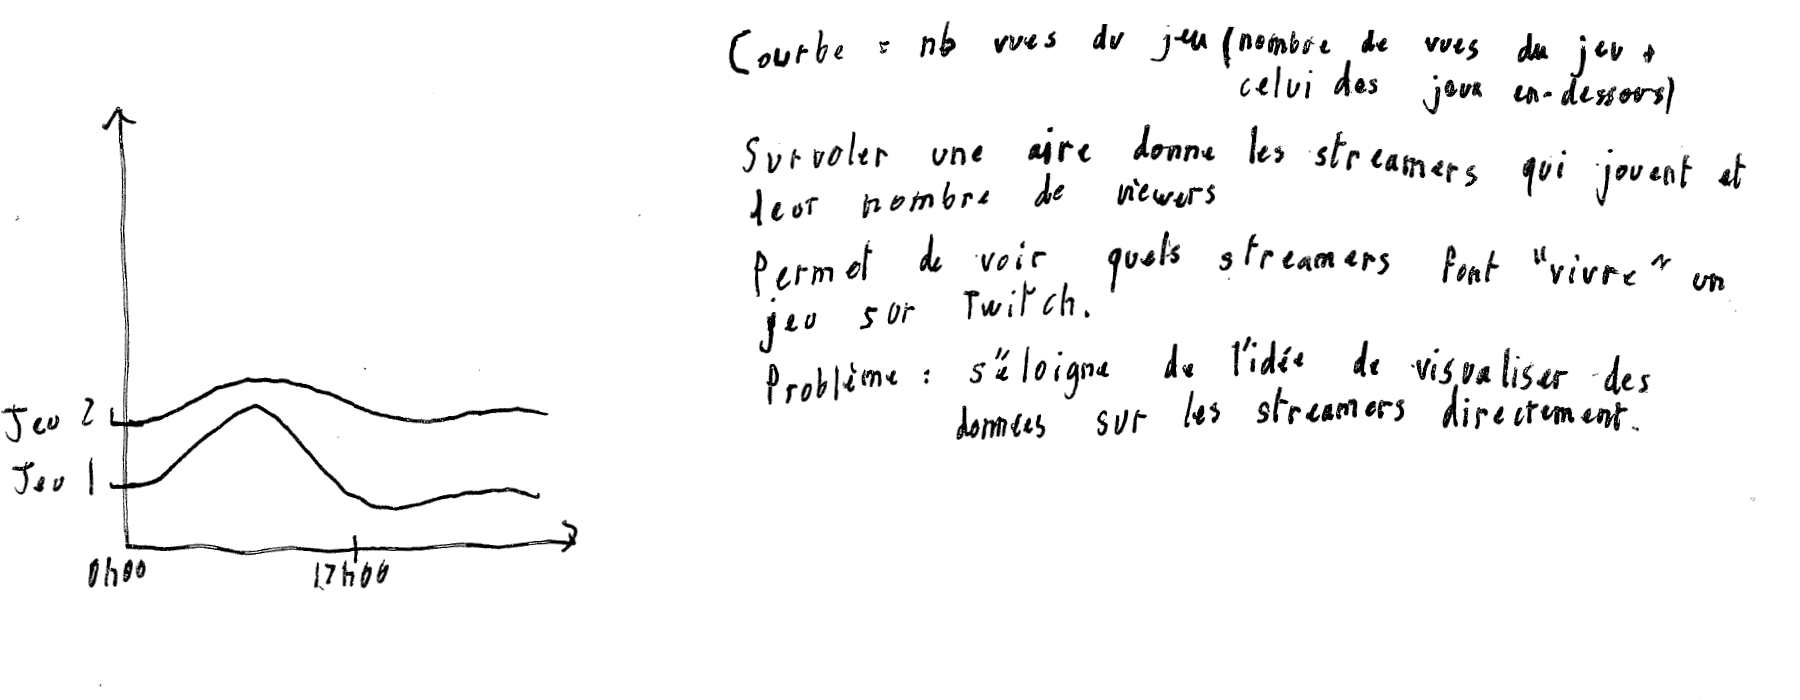 Courbe = nb vues du jeu (nombre de vues du jeu +
celui des jeux en-dessous)
Survoler une aire donne les streamers qui jouent et
leur nombre de viewers
Permet de voir quels streamers font "vivre" un
jeu sur Twitch.
Problème : s'éloigne de l'idée de visualiser des
données sur les streamers directement.
Jeu 2
Jeu 1
0h00
17h00